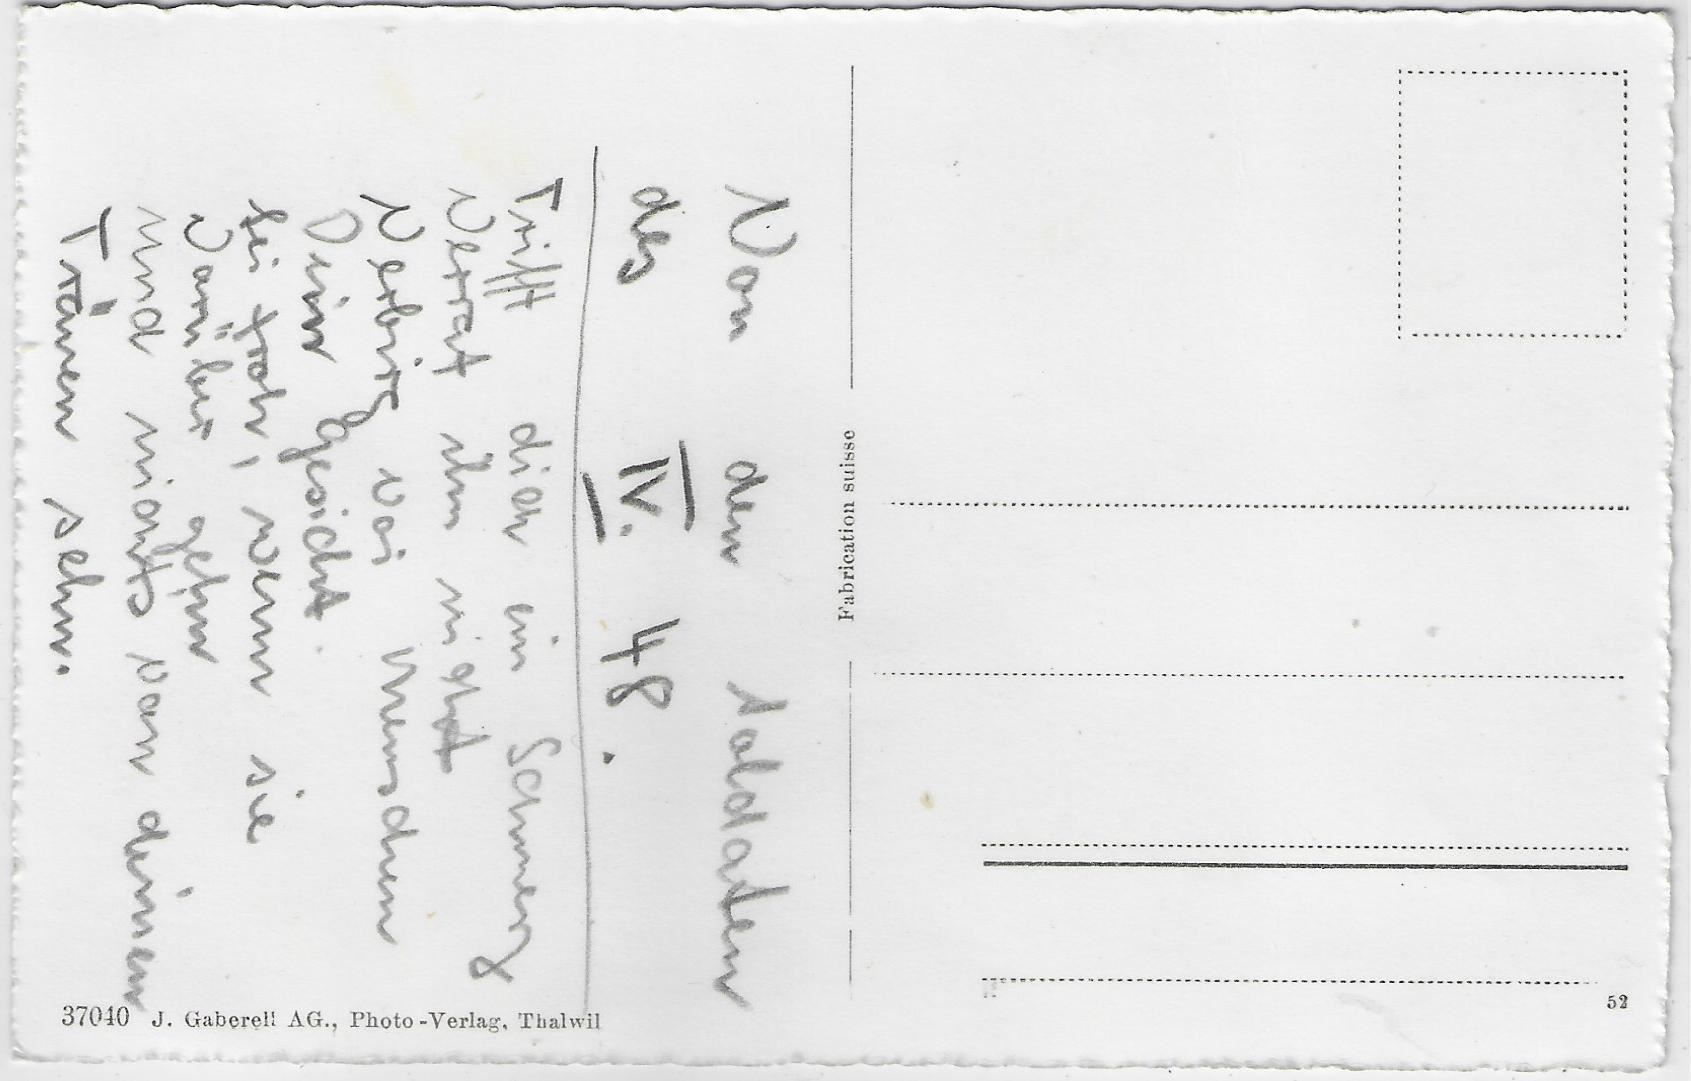 Von dem Soldaten
des IV. 48.
Trifft dich ein Schmerz
Verrat ihn nicht
Verbirg vor Menschen
Dein gesicht.
sei froh, wenn sie
vorüber gehn
und nichts von deinen
Tränen sehn.
Fabrication suisse
37040 J. Gaberell AG., Photo-Verlag, Thalwil
52